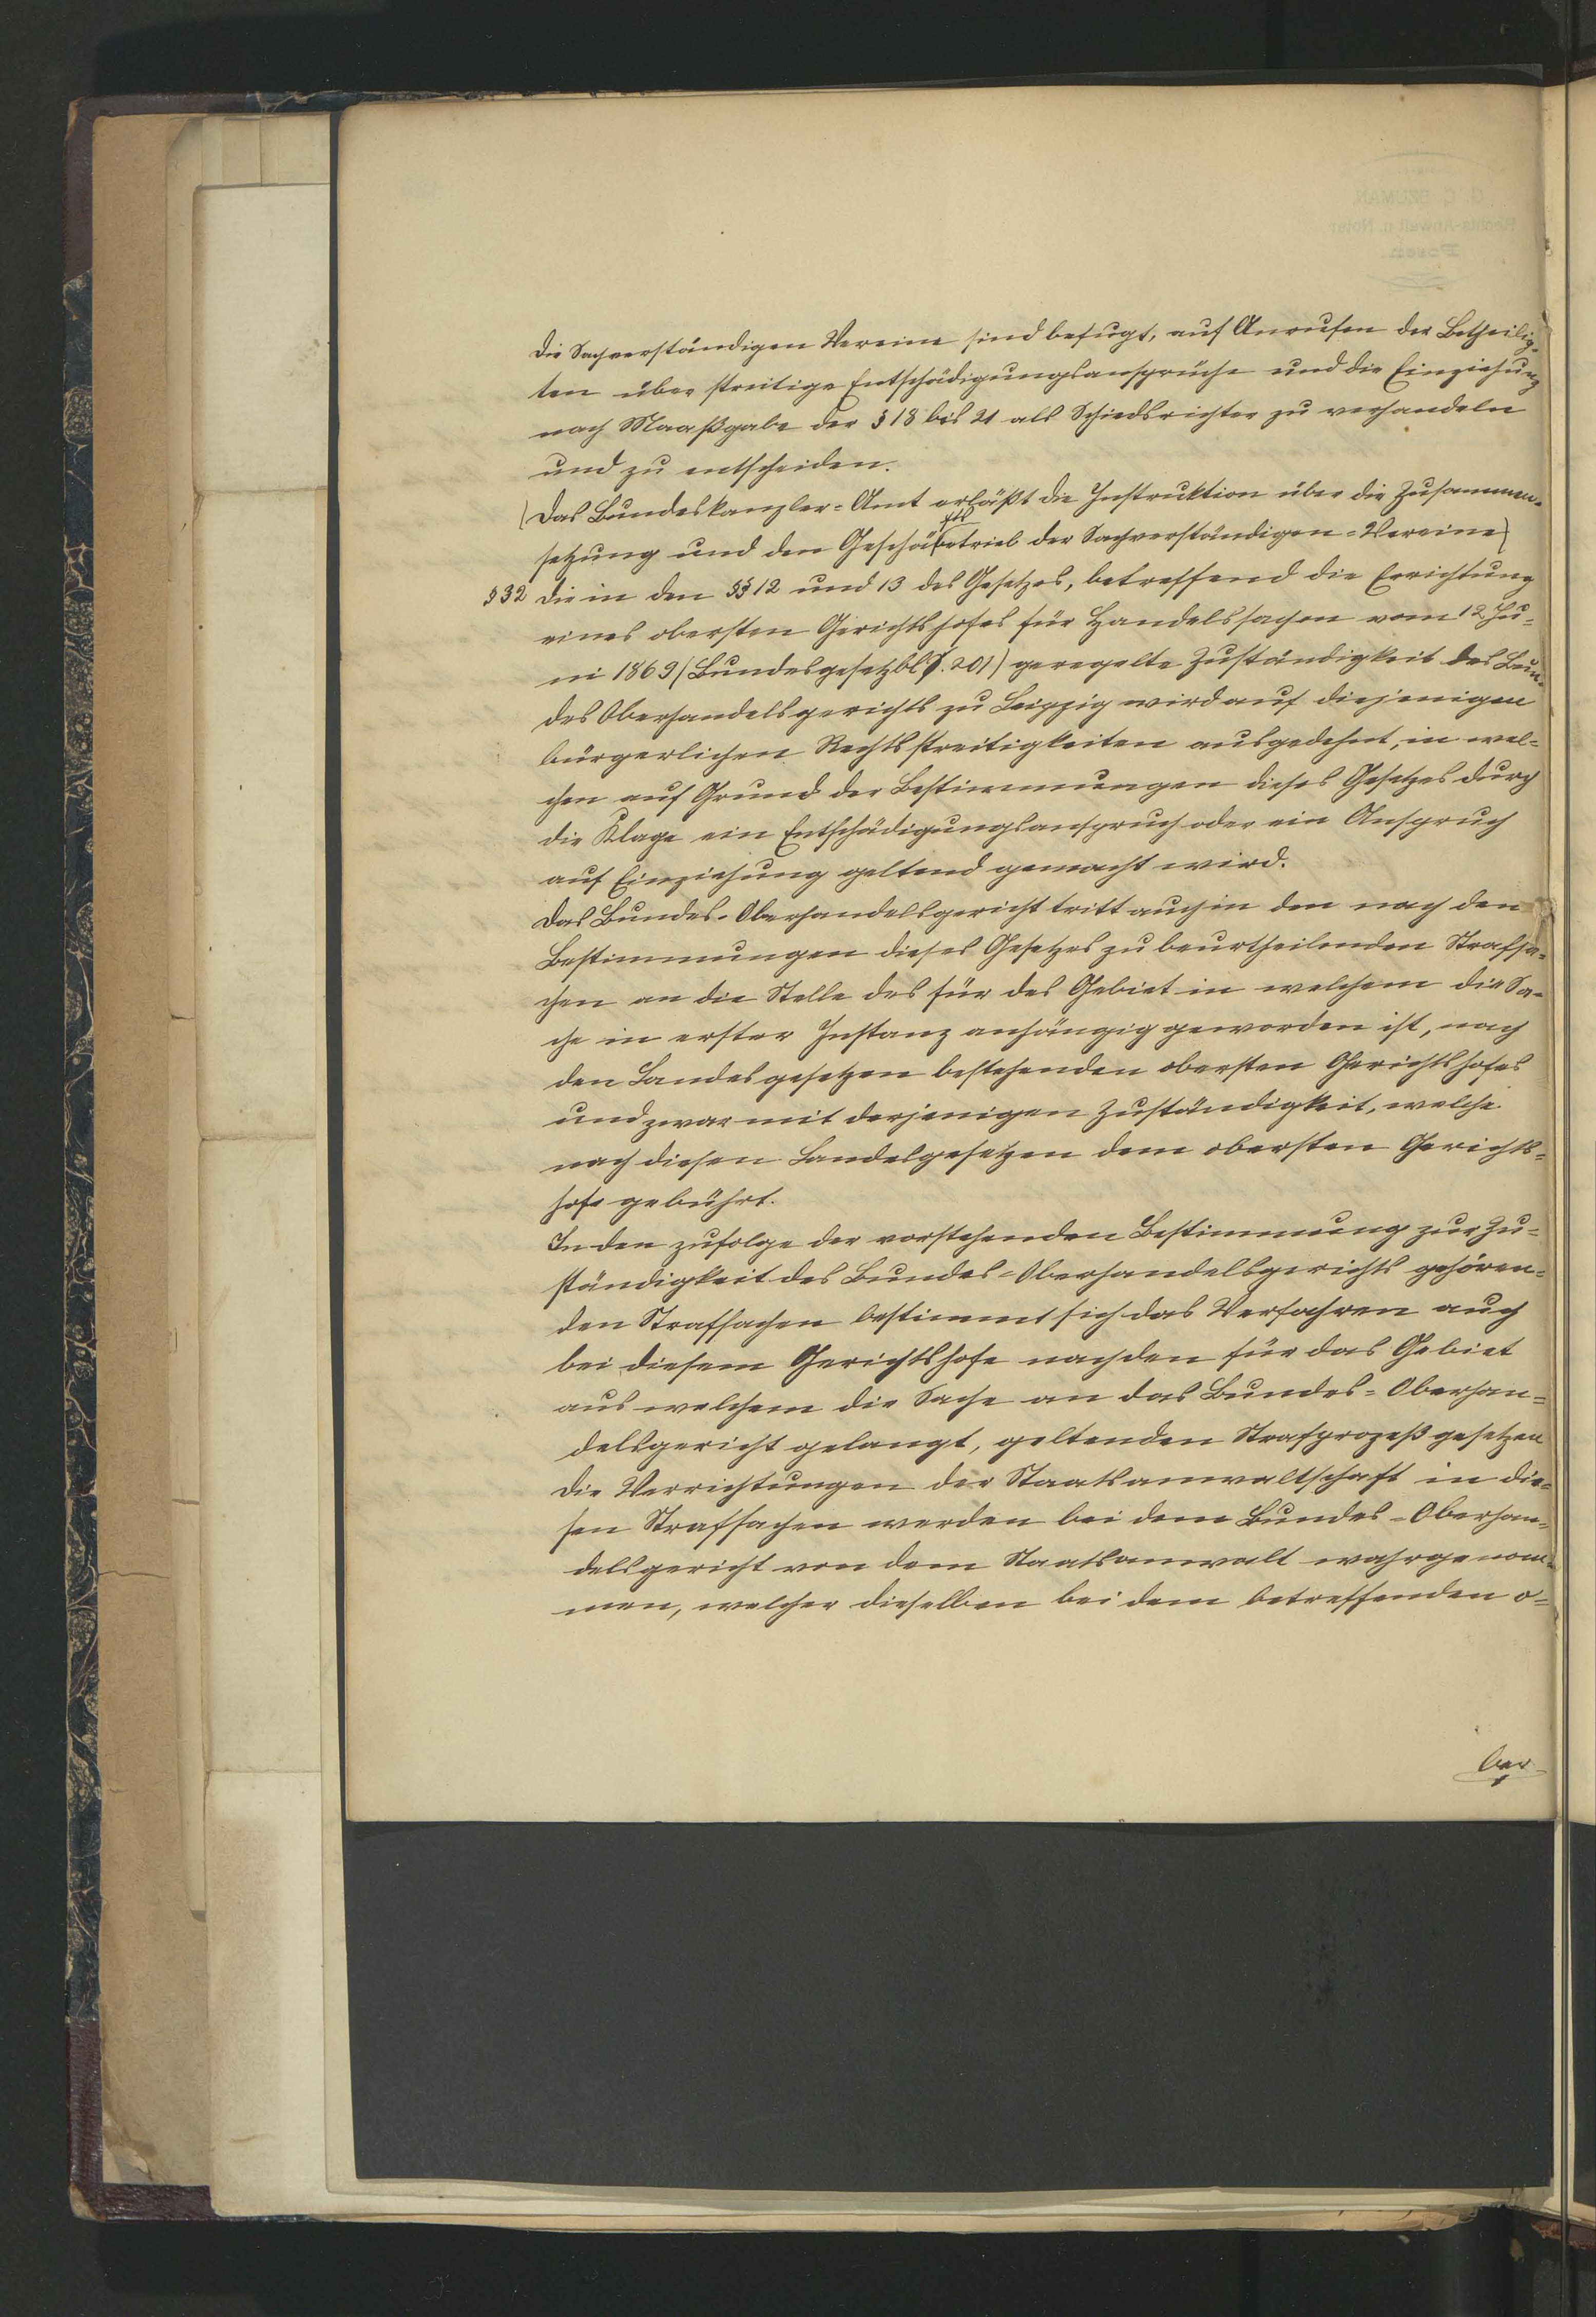 Die Sachverständigen Vereine sind befugt, auf Anrufen der Betheilig-
ten über streitige Entschädigungsansprüche und die Einziehung
nach Maaßgabe der § 18 bis 21 als Schiedsrichter zu verhandeln
und zu entscheiden.
(Das Bundeskanzler-Amt erläßt die Instruktion über die Zusammen-
setzung und den Geschäftsbetrieb der Sachverständigen-Vereine)
§ 32 Die in den §§ 12 und 13 des Gesetzes, betreffend die Errichtung
eines obersten Gerichtshofes für Handelssachen vom 12 Ju-
ni 1869 (Bundesgesetzbl S. 201) geregelte Zuständigkeit des Bun-
des Oberhandelsgerichts zu Leipzig wird auf diejenigen
bürgerlichen Rechtsstreitigkeiten ausgedehnt, in wel-
chen auf Grund der Bestimmungen dieses Gesetzes durch
die Klage ein Entschädigungsanspruch oder ein Anspruch
auf Einziehung geltend gemacht wird.
Das Bundes-Oberhandelsgericht tritt auch in den nach den
Bestimmungen dieses Gesetzes zu beurtheilenden Strafsa-
chen an die Stelle des für des Gebiet in welchem die Sa-
che in erster Instanz anhängig geworden ist, nach
den Landesgesetzen bestehenden obersten Gerichtshofes
und zwar mit derjenigen Zuständigkeit, welche
nach diesen Landesgesetzen dem obersten Gerichts-
hofe gebührt.
In den zufolge der vorstehenden Bestimmung zur Zu-
ständigkeit des Bundes-Oberhandelsgerichts gehören-
den Strafsachen bestimmt sich das Verfahren auch
bei diesem Gerichtshofe nach den für das Gebiet
aus welchem die Sache an das Bundes-Oberhan-
delsgericht gelangt, geltenden Strafprozeßgesetzen
Die Verrichtungen der Staatsanwaltschaft in die-
sen Strafsachen werden bei dem Bundes-Oberhan-
delsgericht von dem Staatsanwalt wahrgenom-
men, welcher dieselben bei dem betreffenden o-
ber